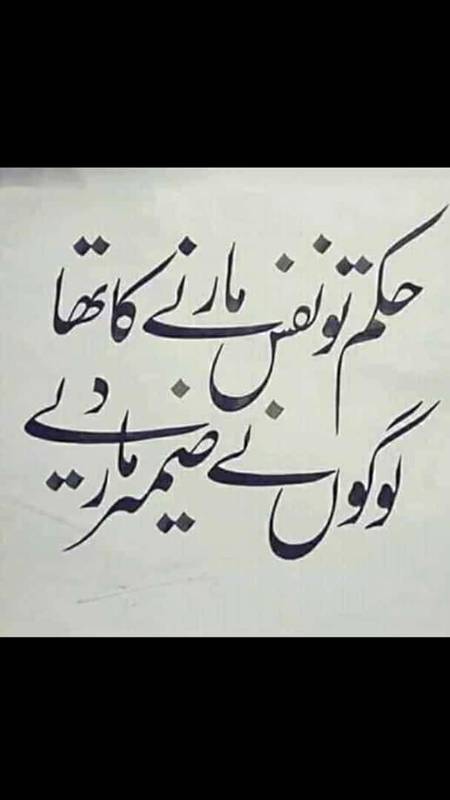 حکم تو نفس مارنے کا تھا
لوگوں نے ضمیر مار دیے